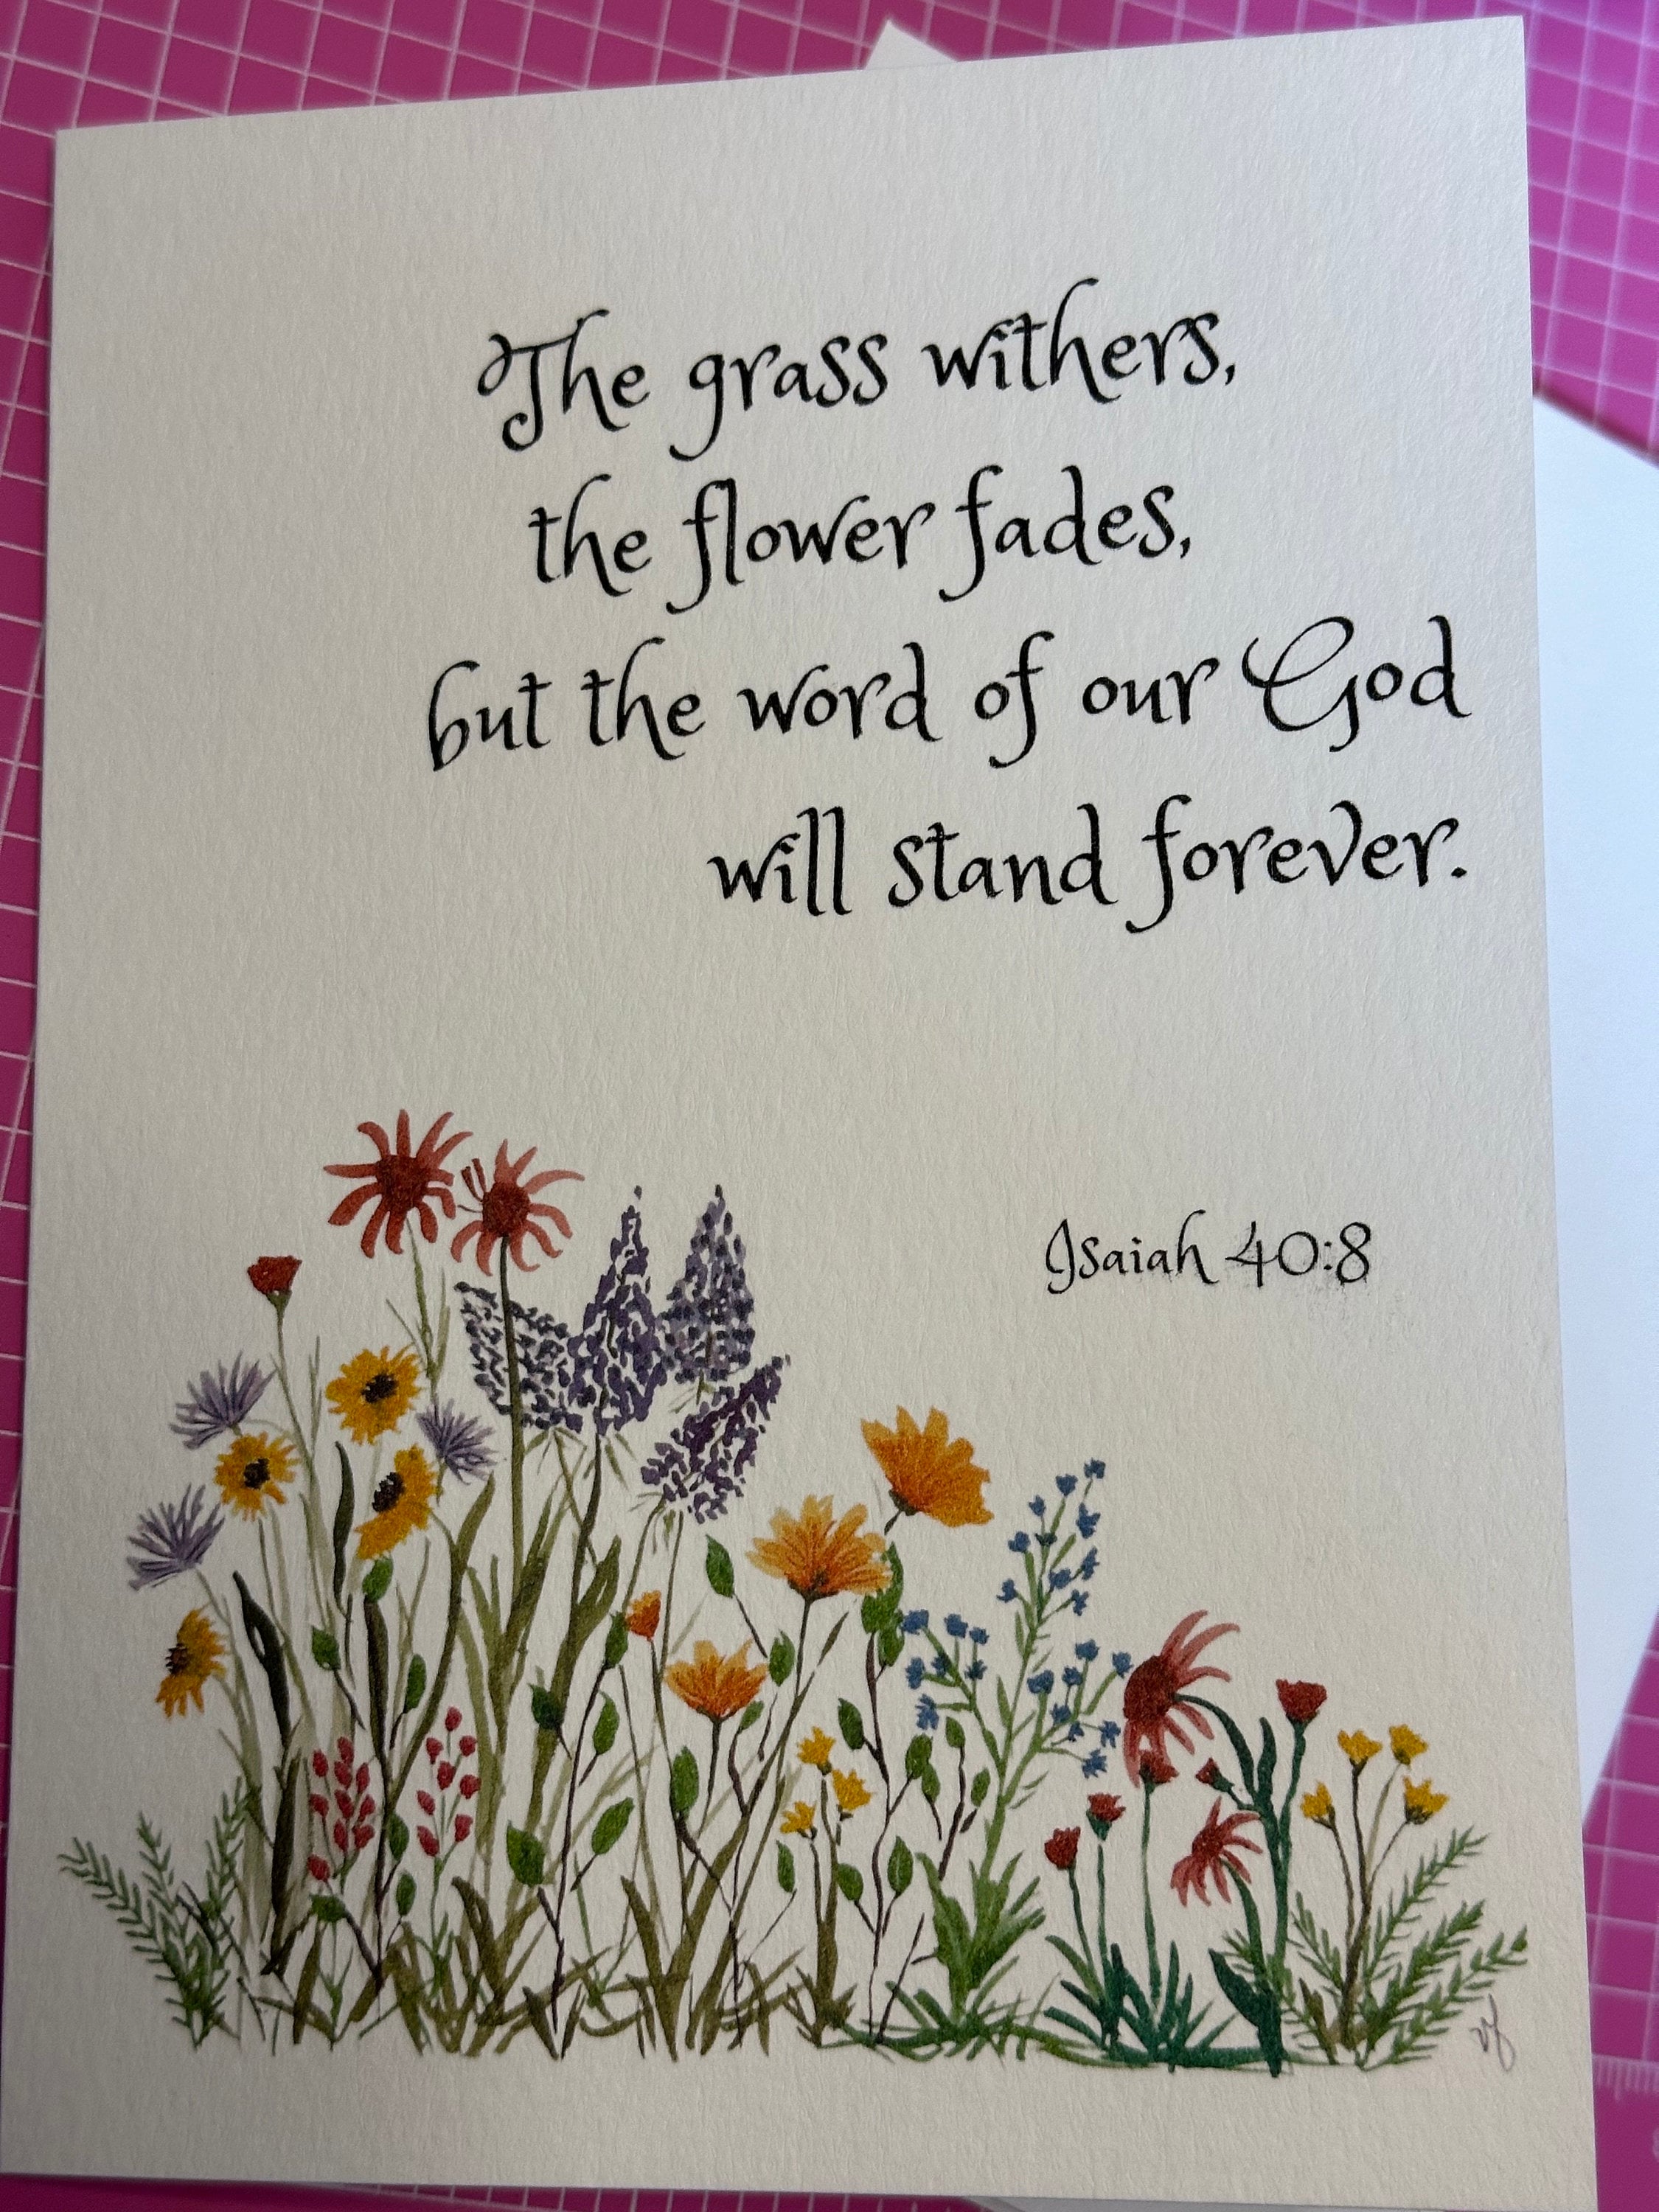 The grass withers,
the flower fades,
but the word of our God
will stand forever.
Isaiah 40:8